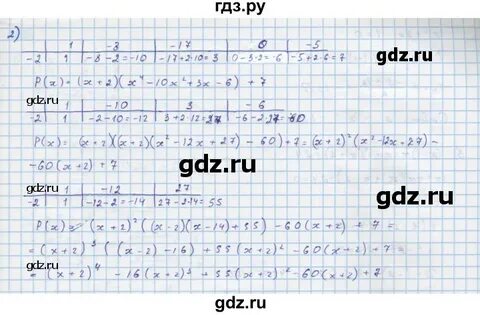 гдз.ру
2)
1 -8 -17 0 -5
-2 1 -8-2=-10 -17+2·10=3 0-3·2=-6 -5+2·6=7
P(x)=(x+2)(x⁴-10x²+3x-6)+7
1 -10 3 -6
-2 1 -2-10=-12 3+2·12=27 -6-2·27=-60
P(x)=(x+2)(x+2)(x²-12x+27)-60)+7=(x+2)²(x²-12x+27)-
-60(x+2)+7
1 -12 27
-2 1 -12-2=-14 27-2·14=55
P(x)=(x+2)²((x-2)(x-14)+55)-60(x+2)+7=
=(x+2)³((x-2)-16)+55(x+2)²-60(x+2)+7=
=(x+2)⁴-16(x+2)³+55(x+2)²-60(x+2)+7
gdz.ru
gdz.ru
gdz.ru
gdz.ru
gdz.ru
gdz.ru
gdz.ru